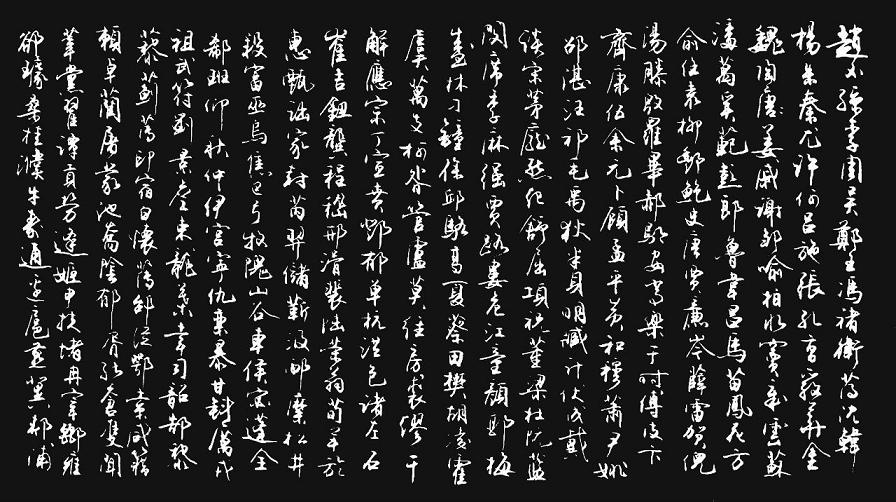 趙孫李周吳鄭王馮褚衛蔣沈韓
楊朱秦尤許何呂施張孔曹嚴華金
魏陶姜戚謝鄒喻柏水竇章雲蘇
潘葛奚範彭郎魯韋昌馬苗鳳花方
俞任袁柳酆鮑史唐費廉岑薛雷賀倪
湯滕殷羅畢郝鄔安常樂于時傅皮卞
齊康伍余元卜顧孟平黃和穆蕭尹姚
邵湛汪祁毛禹狄米貝明臧計伏成戴
談宋茅龐熊紀舒屈項祝董梁杜阮藍
閔席季麻強賈路婁危江童顏郭梅
盛林刁鍾徐邱駱高夏蔡田樊胡凌霍
虞萬支柯昝管盧莫經房裘繆干
解應宗丁宣賁鄧郁單杭洪包諸左石
崔吉鈕龔程嵇邢滑裴陸榮翁荀羊於
惠甄家封芮羿儲靳汲邴糜松井
段富巫烏焦巴弓牧隗山谷車侯宓蓬全
郗班仰秋仲伊宮寧仇欒暴甘鈄厲戎
祖武符劉景詹束龍葉幸司韶郜黎
薊薄印宿白懷蒲邰從鄂索咸籍
賴卓藺屠蒙池喬陰郁胥能蒼雙聞
莘黨翟譚貢勞逄姬申扶堵冉宰酈雍
郤璩桑桂濮牛壽通邊扈燕冀郟浦